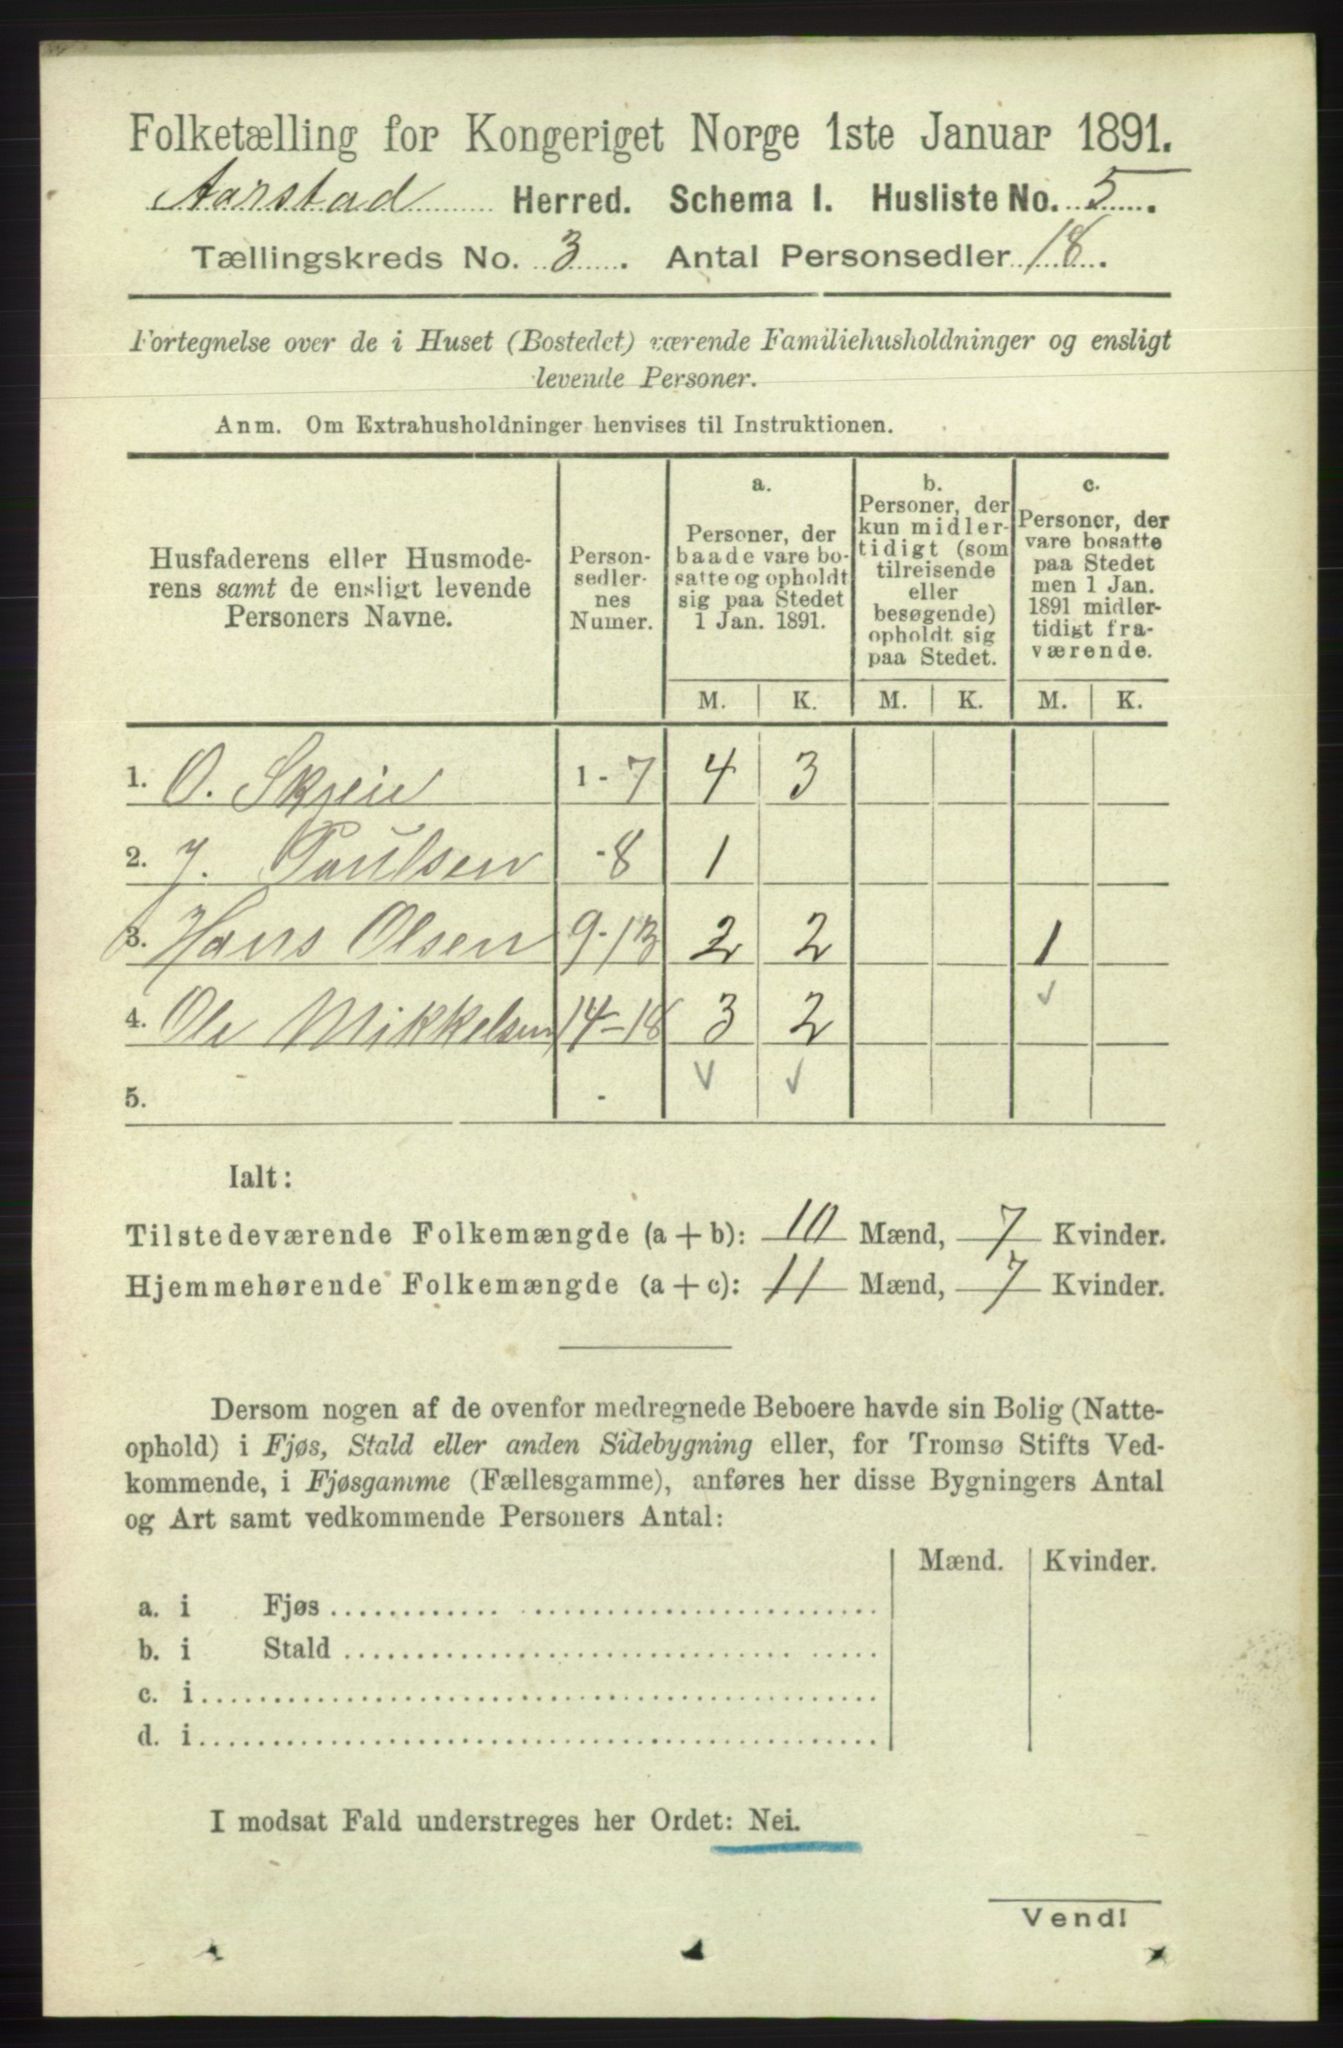 Folketælling for Kongeriget Norge 1ste Januar 1891.
Aarstad Herred. Schema I. Husliste No. 5.
Tællingskreds No. 3. Antal Personsedler 18.
Fortegnelse over de i Huset (Bostedet) værende Familiehusholdninger og ensligt
levende Personer.
Anm. Om Extrahusholdninger henvises til Instruktionen.
Husfaderens eller Husmode-
rens samt de ensligt levende
Personers Navne.
Person-
sedler-
nes
Numer.
a.
Personer, der
baade vare bo-
satte og opholdt
sig paa Stedet
1 Jan. 1891.
b.
Personer, der
kun midler-
tidigt (som
tilreisende
eller
besøgende)
opholdt sig
paa Stedet.
c.
Personer, der
vare bosatte
paa Stedet
men 1 Jan.
1891 midler-
tidigt fra-
værende.
M. K. M. K. M. K.
1. O. Skjeie 1-7 4 3
2. J. Paulsen -8 1
3. Hans Olsen 9-13 2 2 1
4. Ole Mikkelsen 14-18 3 2
5. -
Ialt:
Tilstedeværende Folkemængde (a + b): 10 Mænd, 7 Kvinder.
Hjemmehørende Folkemængde (a + c): 11 Mænd, 7 Kvinder.
Dersom nogen af de ovenfor medregnede Beboere havde sin Bolig (Natte-
ophold) i Fjøs, Stald eller anden Sidebygning eller, for Tromsø Stifts Ved-
kommende, i Fjøsgamme (Fællesgamme), anføres her disse Bygningers Antal
og Art samt vedkommende Personers Antal:
Mænd. Kvinder.
a. i Fjøs
b. i Stald
c. i
d. i
I modsat Fald understreges her Ordet: Nei.
Vend!